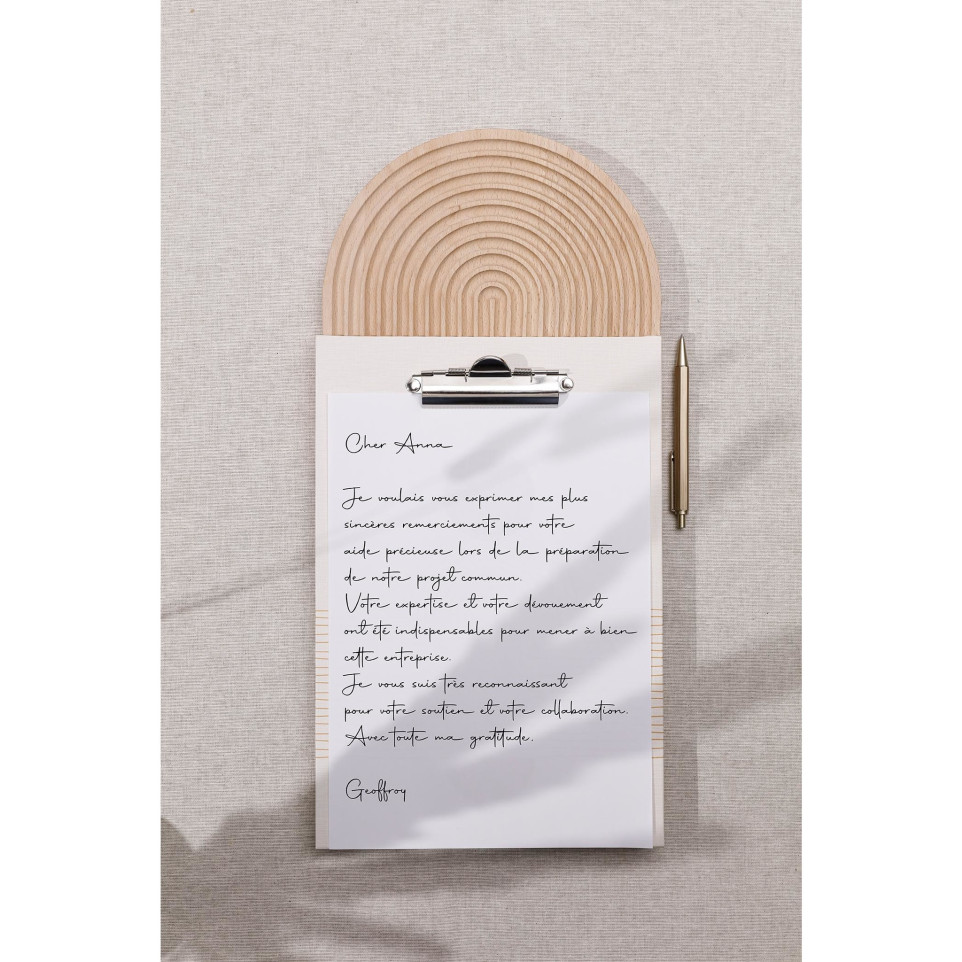 Cher Anna
Je voulais vous exprimer mes plus
sincères remerciements pour votre
aide précieuse lors de la préparation
de notre projet commun.
Votre expertise et votre dévouement
ont été indispensables pour mener à bien
cette entreprise.
Je vous suis très reconnaissant
pour votre soutien et votre collaboration.
Avec toute ma gratitude.
Geoffroy